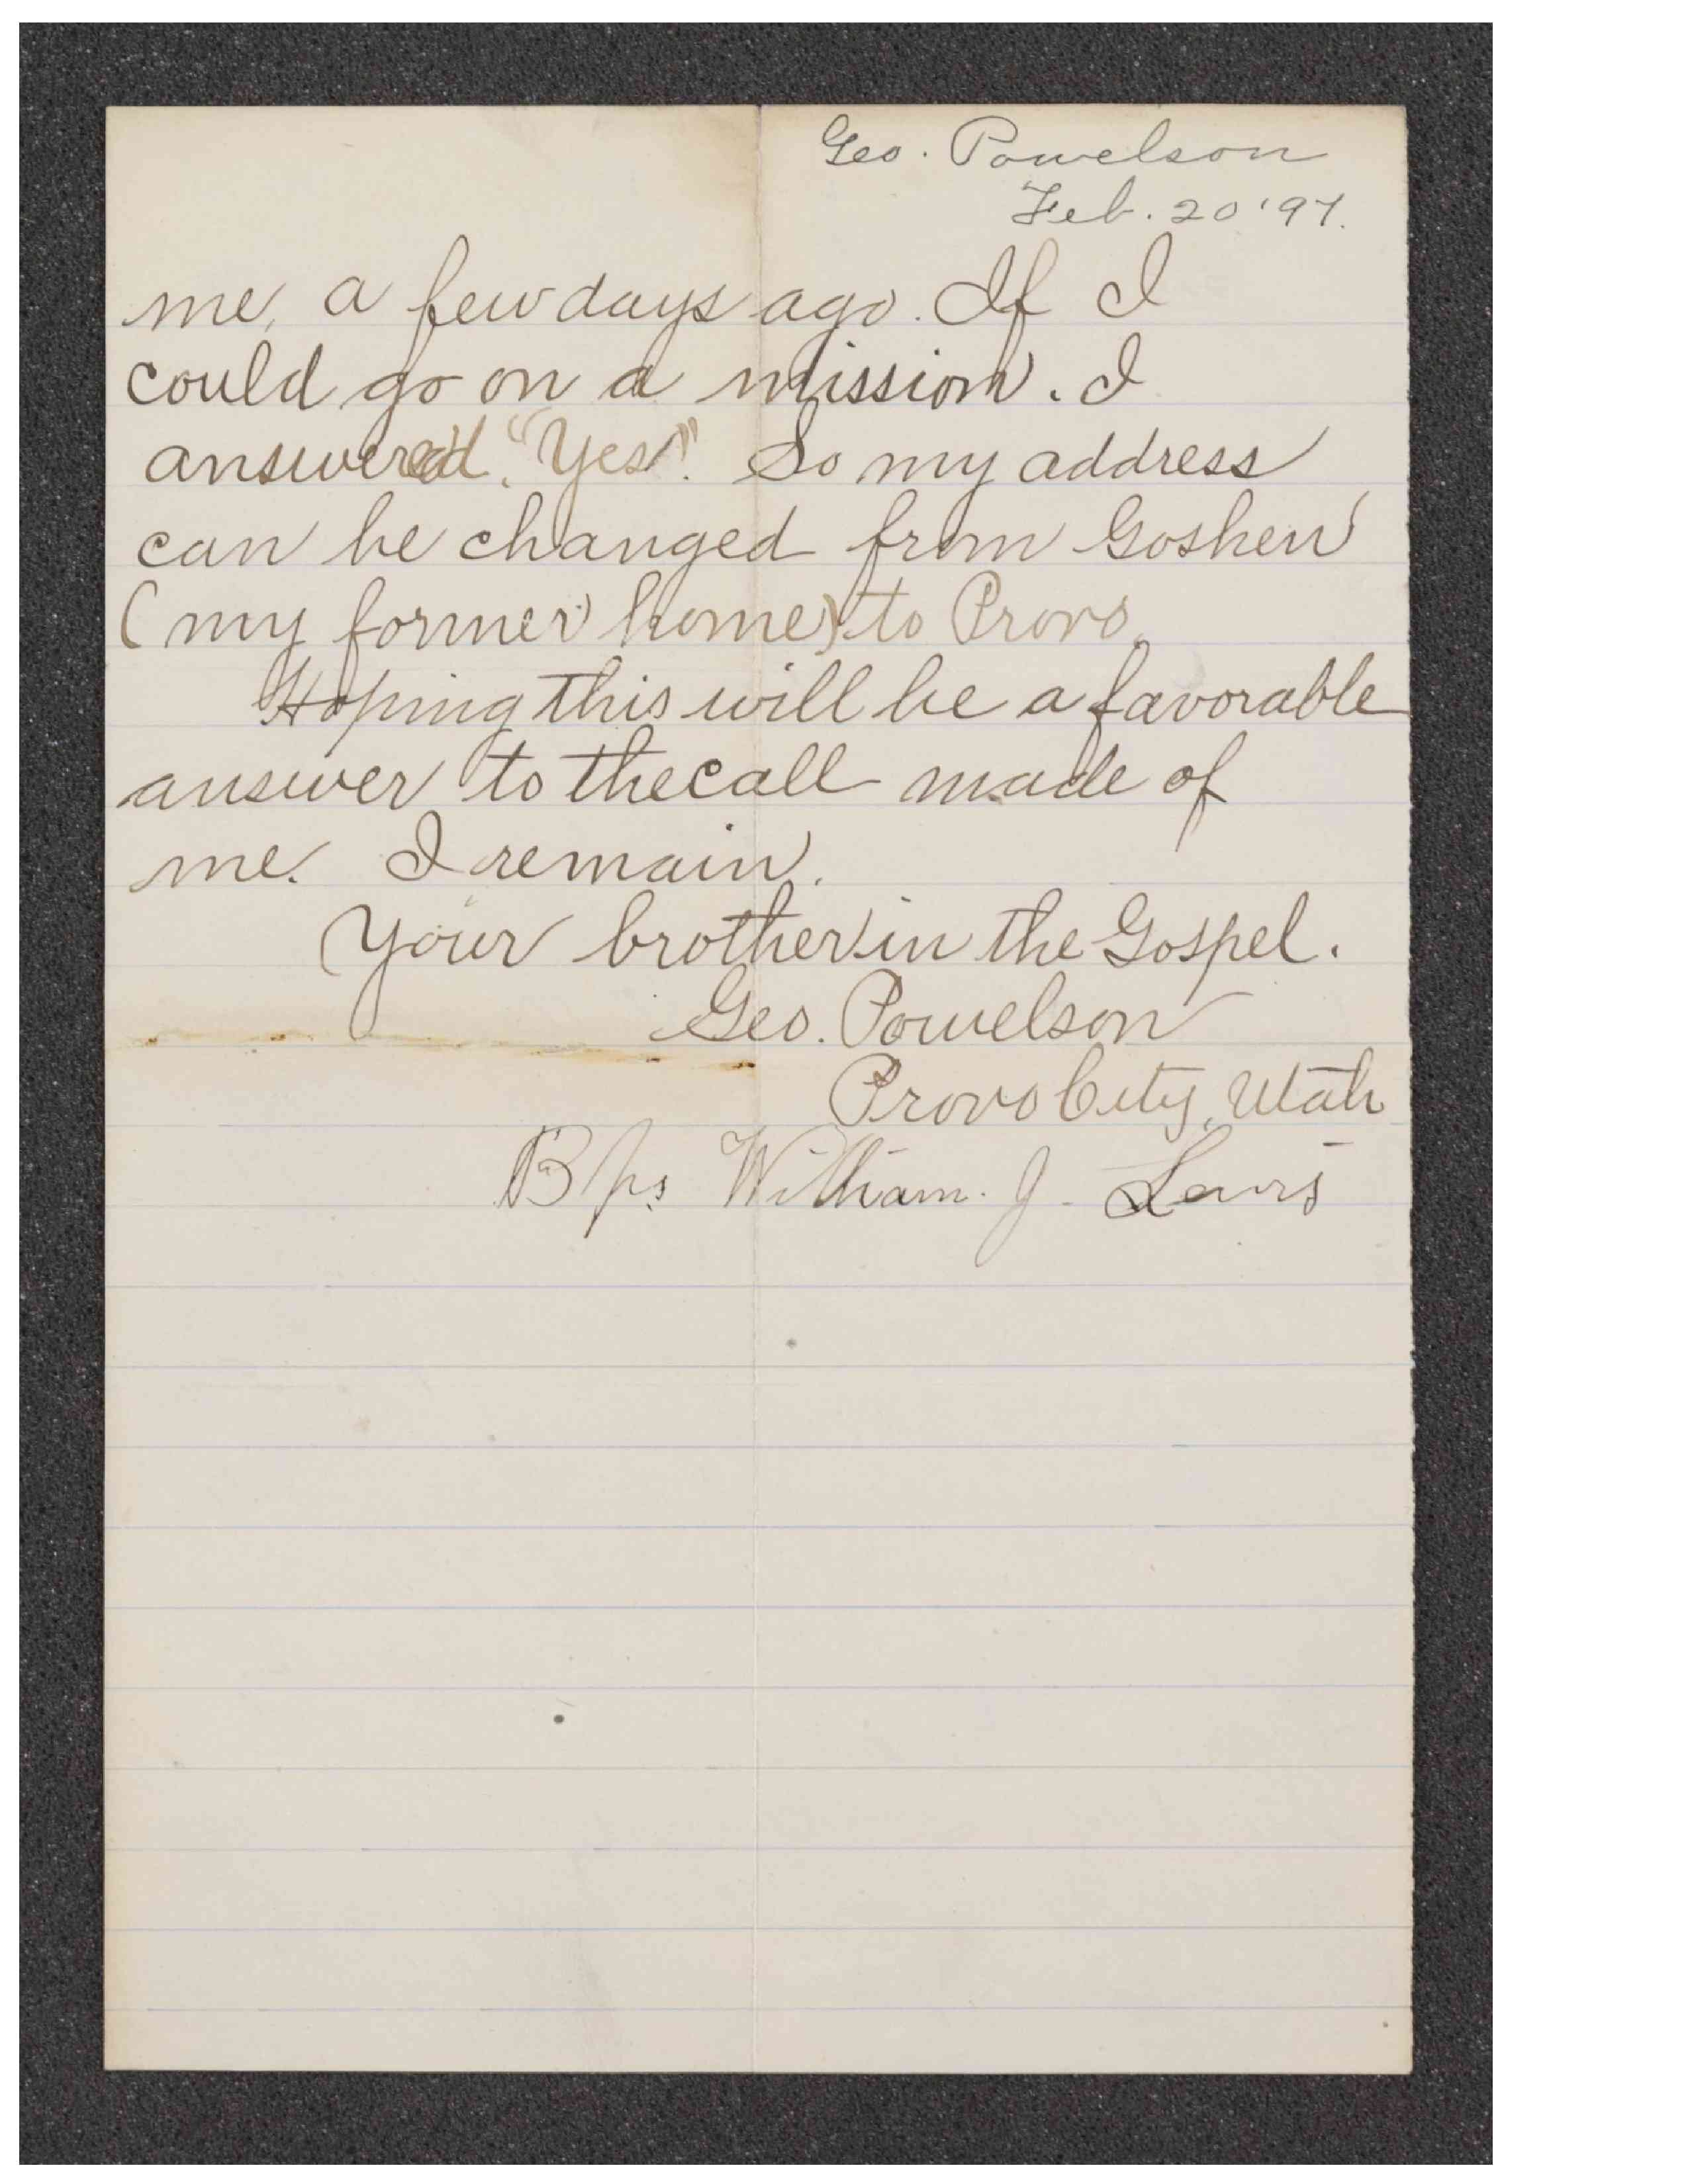 Geo. Powelson
Feb. 20 '97.
me, a few days ago. If I
could go on a mission. I
answered, "Yes". So my address
can be changed from Goshen
(my former home) to Provo.
Hoping this will be a favorable
answer to the call made of
me. I remain.
Your brother in the Gospel.
Geo. Powelson
Provo City, Utah
Bps William. J. Lewis